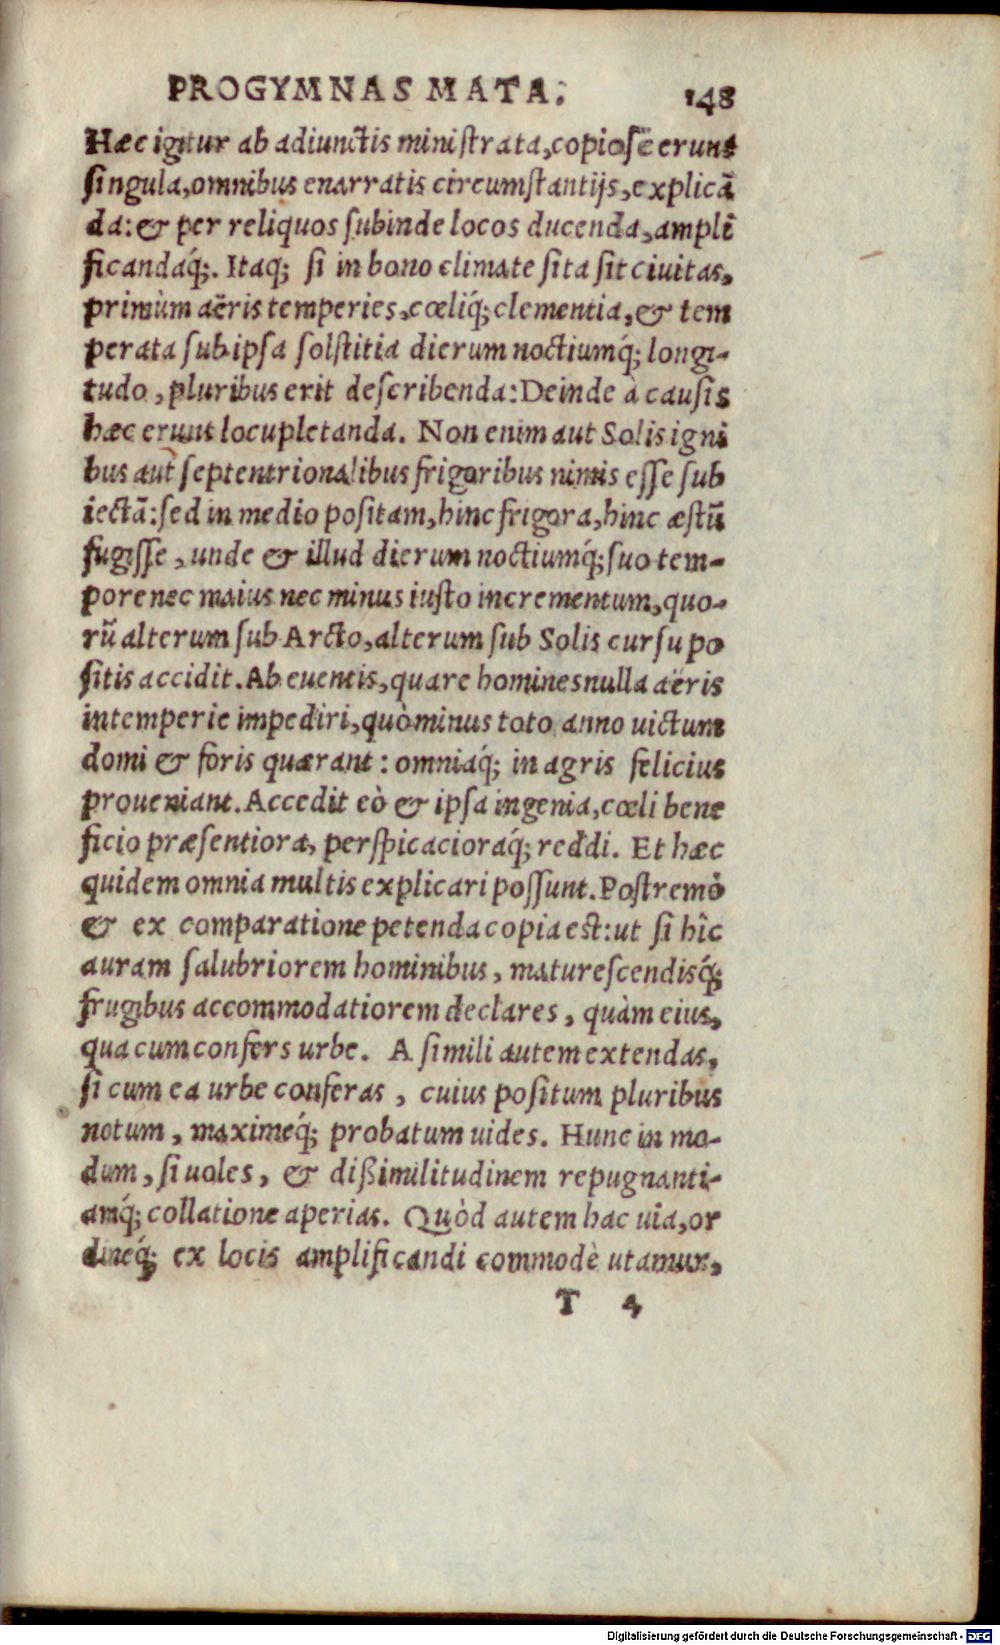 PROGYMNASMATA. 148
Hæc igitur ab adiunctis ministrata, copiosè erunt
singula, omnibus enarratis circumstantijs, explicā
da: & per reliquos subinde locos ducenda, ampli
ficandaq́;. Itaq; si in bono climate sita sit ciuitas,
primùm aëris temperies, cœliq́; clementia, & tem
perata sub ipsa solstitia dierum noctiumq́; longi-
tudo, pluribus erit describenda: Deinde à causis
hæc erunt locupletanda. Non enim aut Solis igni
bus aut septentrionalibus frigoribus nimis esse sub
iectā: sed in medio positam, hinc frigora, hinc æstū
fugisse, unde & illud dierum noctiumq́; suo tem-
pore nec maius nec minus iusto incrementum, quo-
rū alterum sub Arcto, alterum sub Solis cursu po
sitis accidit. Ab euentis, quare homines nulla aëris
intemperie impediri, quò minus toto anno uictum
domi & foris quærant: omniaq́; in agris felicius
proueniant. Accedit eò & ipsa ingenia, cœli bene
ficio præsentiora, perspicacioraq́; reddi. Et hæc
quidem omnia multis explicari possunt. Postremò
& ex comparatione petenda copia est: ut si hîc
auram salubriorem hominibus, maturescendisq́;
frugibus accommodatiorem declares, quàm eius,
qua cum confers urbe. A simili autem extendas,
si cum ea urbe conferas, cuius positum pluribus
notum, maximeq́; probatum uides. Hunc in mo-
dum, si uoles, & dißimilitudinem repugnanti-
amq́; collatione aperias. Quòd autem hac uia, or
dineq́; ex locis amplificandi commodè utamur,
T 4
Digitalisierung gefördert durch die Deutsche Forschungsgemeinschaft - DFG